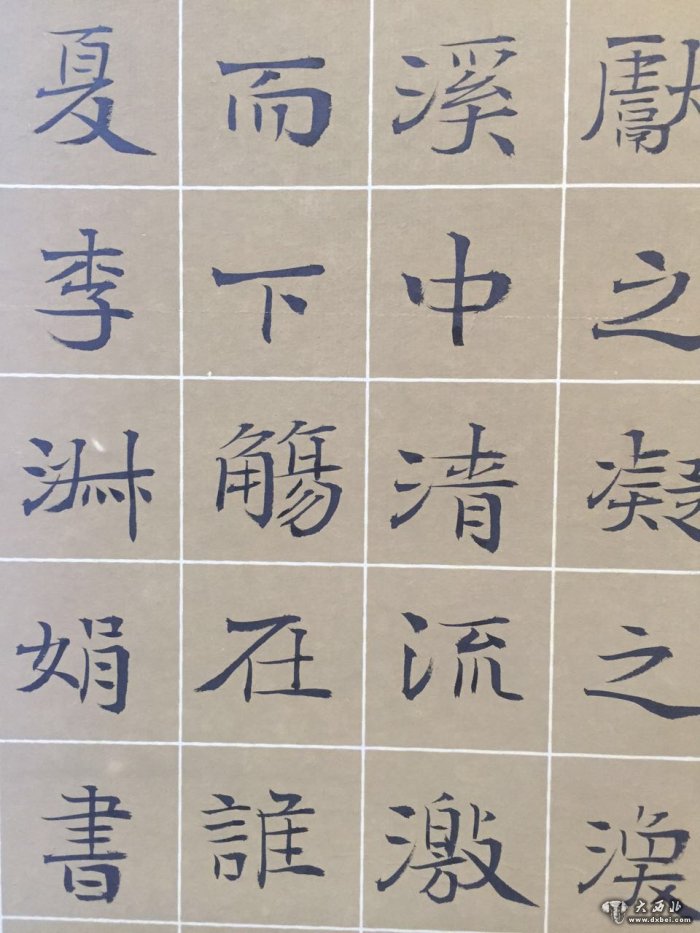 獻之凝之渙
溪中清流激
而下觴在誰
夏李娟書
大西北
www.dxbei.com